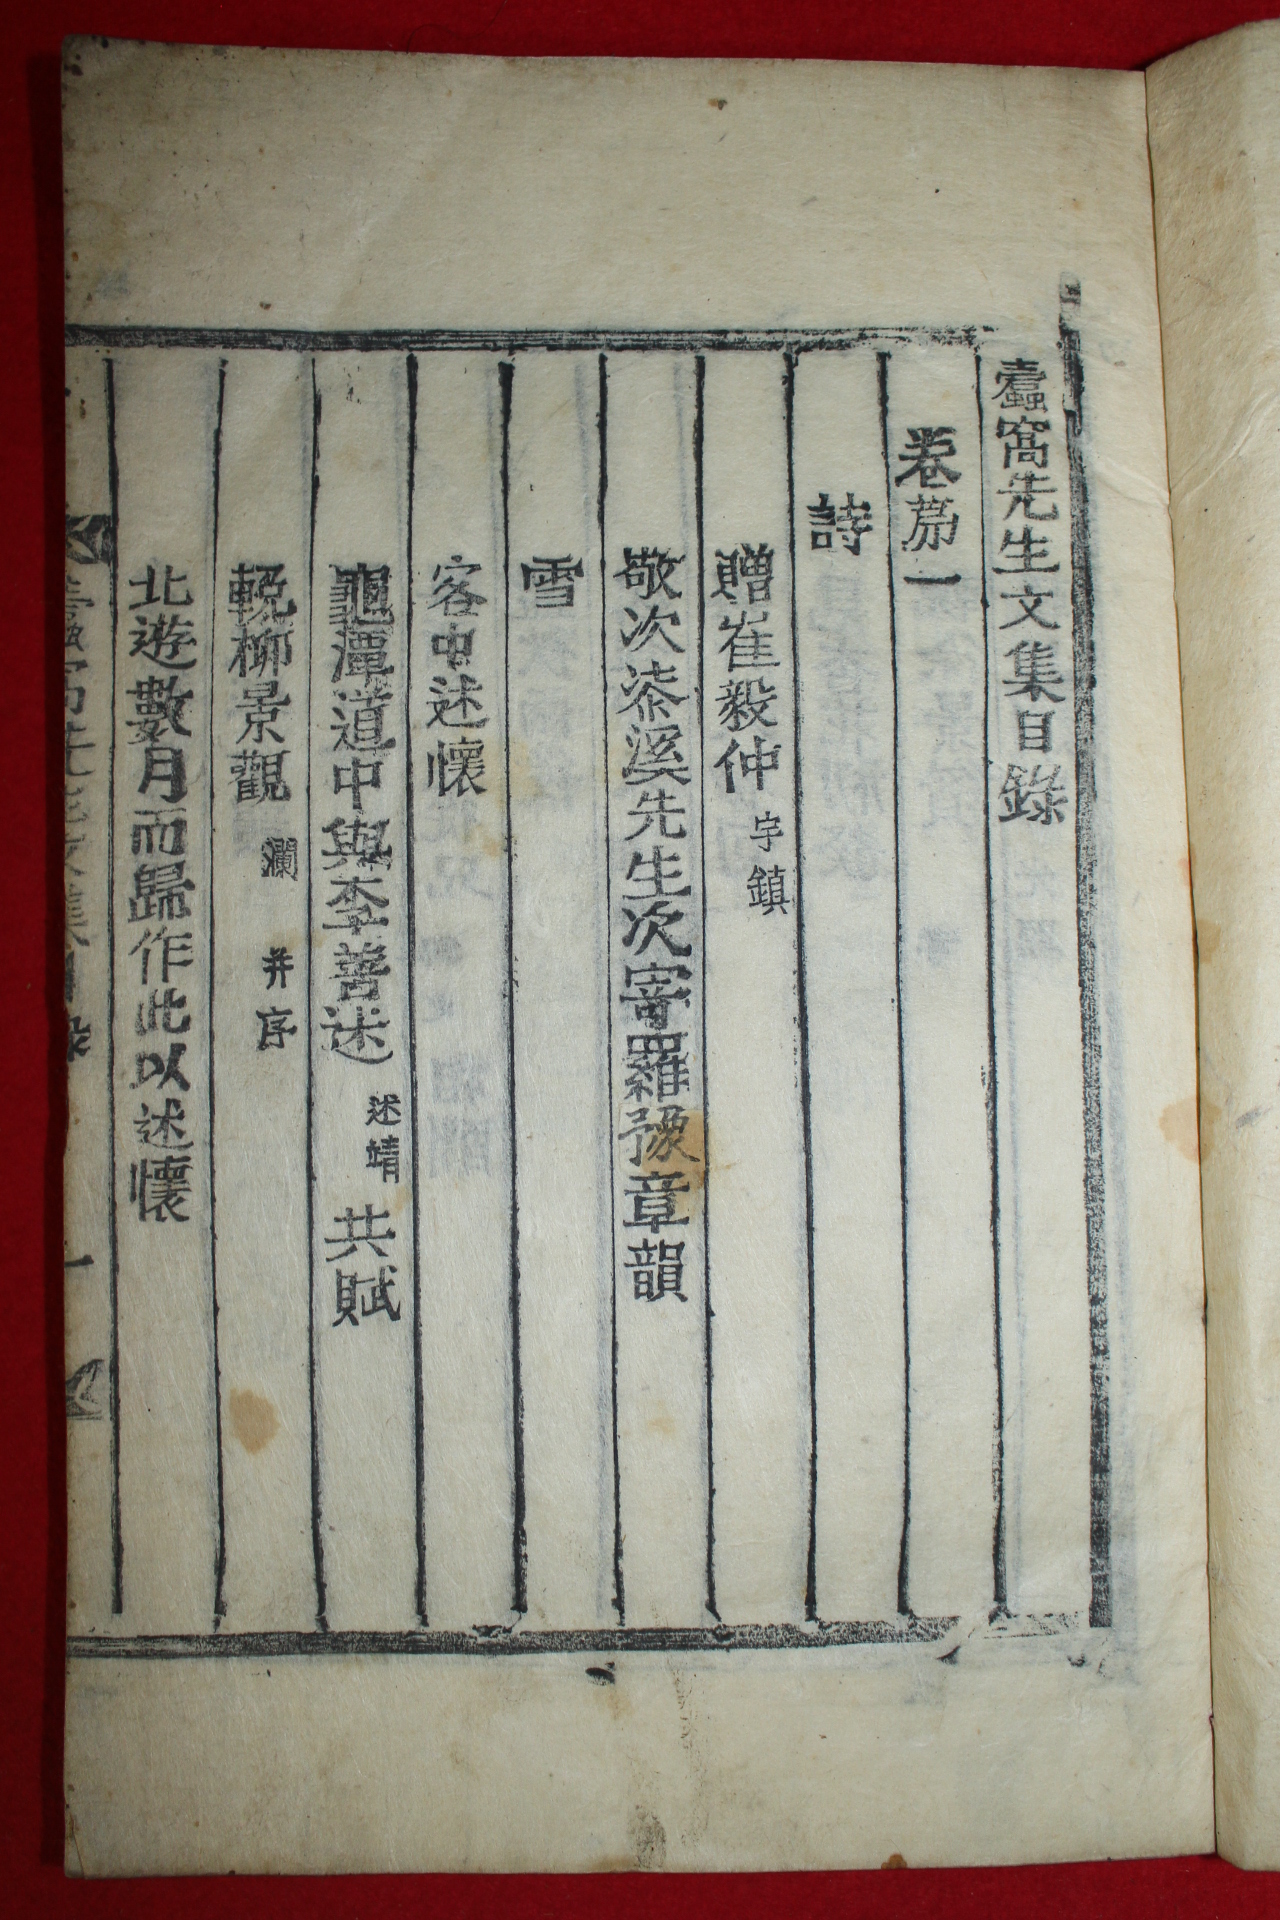 蠹窩先生文集目錄
卷苐一
詩
贈崔毅仲 宇鎭
敬次漆溪先生次寄羅豫章韻
雪
客中述懷
龜潭道中與李善述 述靖 共賦
輓柳景觀 瀾 并序
北遊數月而歸作此以述懷
蠹窩先生文集目錄 一